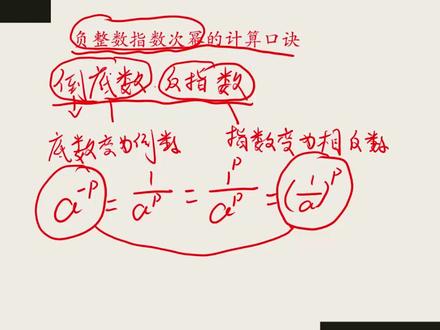 负整数指数次幂的计算口诀
倒底数 反指数
底数变为倒数 指数变为相反数
a^{-p} = \frac{1}{a^p} = \frac{1^p}{a^p} = (\frac{1}{a})^p